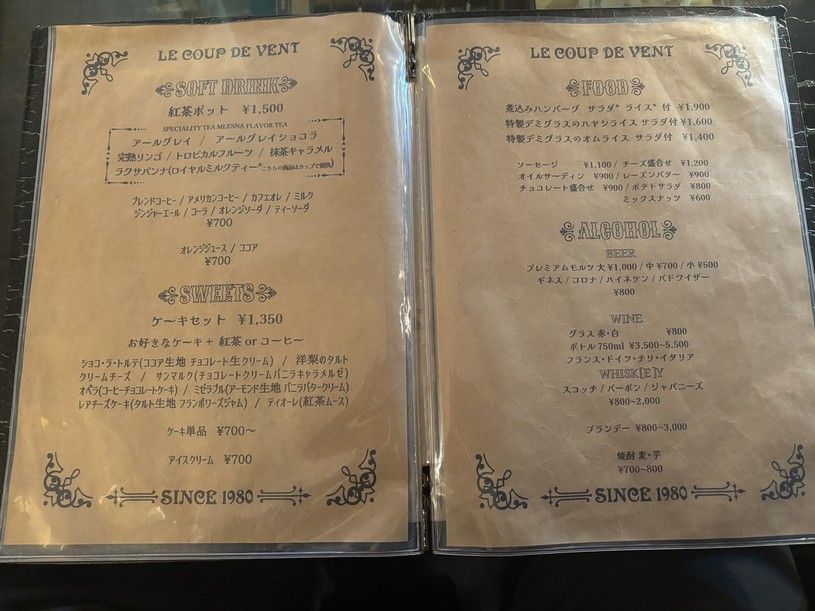 LE COUP DE VENT
SOFT DRINK
紅茶ポット ¥1,500
SPECIALITY TEA MLESNA FLAVOR TEA
アールグレイ / アールグレイショコラ
完熟リンゴ / トロピカルフルーツ / 抹茶キャラメル
ラクサパンナ(ロイヤルミルクティー*こちらの商品はカップで提供)
ブレンドコーヒー / アメリカンコーヒー / カフェオレ / ミルク
ジンジャーエール / コーラ / オレンジソーダ / ティーソーダ
¥700
オレンジジュース / ココア
¥700
SWEETS
ケーキセット ¥1,350
お好きなケーキ + 紅茶 or コーヒー
ショコ・ラ・トルテ(ココア生地 チョコレート生クリーム) / 洋梨のタルト
クリームチーズ / サンマルク(チョコレートクリームバニラキャラメルゼ)
オペラ(コーヒーチョコレートケーキ) / ミゼラブル(アーモンド生地 バニラバタークリーム)
レアチーズケーキ(タルト生地 フランボワーズジャム) / ティオーレ(紅茶ムース)
ケーキ単品 ¥700～
アイスクリーム ¥700
SINCE 1980
LE COUP DE VENT
FOOD
煮込みハンバーグ サラダ* ライス* 付 ¥1,900
特製デミグラスのハヤシライス サラダ付 ¥1,600
特製デミグラスのオムライス サラダ付 ¥1,400
ソーセージ ¥1,100 / チーズ盛合せ ¥1,200
オイルサーディン ¥900 / レーズンバター ¥900
チョコレート盛合せ ¥900 / ポテトサラダ ¥800
ミックスナッツ ¥600
ALCOHOL
BEER
プレミアムモルツ 大 ¥1,000 / 中 ¥700 / 小 ¥500
ギネス / コロナ / ハイネケン / バドワイザー
¥800
WINE
グラス 赤・白 ¥800
ボトル 750ml ¥3,500~5,500
フランス・ドイツ・チリ・イタリア
WHISK(E)Y
スコッチ / バーボン / ジャパニーズ
¥800~2,000
ブランデー ¥800~3,000
焼酎 麦・芋
¥700~800
SINCE 1980